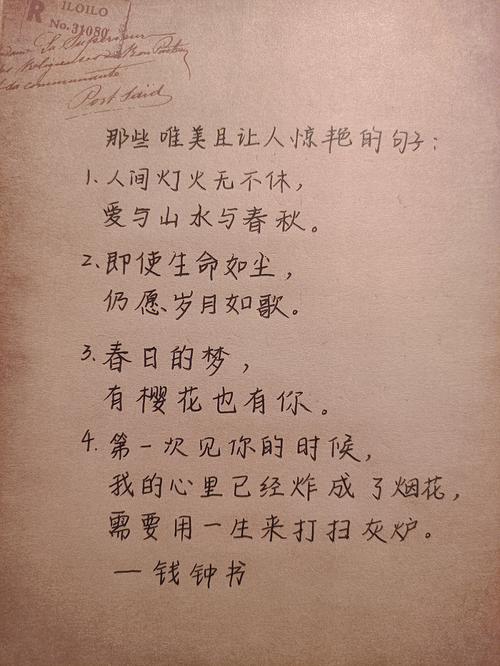 R ILOILO
No.31080
Post Said
那些唯美且让人惊艳的句子：
1、人间灯火无不休，
爱与山水与春秋。
2、即使生命如尘，
仍愿岁月如歌。
3、春日的梦，
有樱花也有你。
4、第一次见你的时候，
我的心里已经炸成了烟花，
需要用一生来打扫灰炉。
—钱钟书